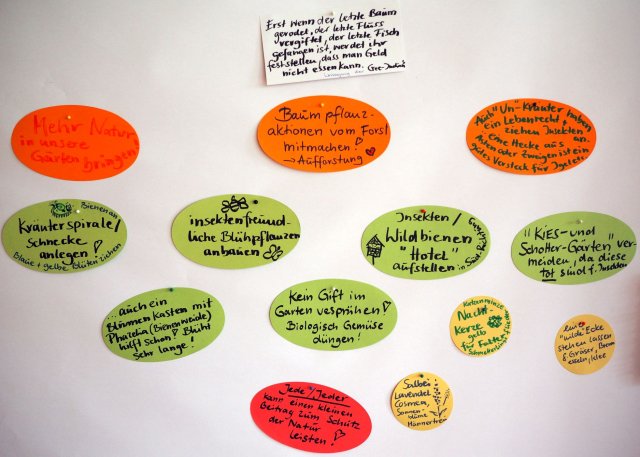 Erst wenn der letzte Baum
gerodet, der letzte Fluss
vergiftet, der letzte Fisch
gefangen ist, werdet ihr
feststellen, dass man Geld
nicht essen kann.
Mehr Natur
in unsere
Gärten
bringen!
Baumpflanz-
aktionen vom Forst
mitmachen!
→ Aufforstung
Auch "Un"-Kräuter haben
ein Lebensrecht &
ziehen Insekten an.
Eine Hecke aus
Ästen oder Zweigen ist ein
gutes Versteck für Igel etc.
Bienen an
Kräuterspirale/
Schnecke
anlegen!
Blaue + gelbe Blüten ziehen
insektenfreund-
liche Blühpflanzen
anbauen
Insekten/
Wildbienen
"Hotel"
aufstellen
"Kies- und
Schotter-Gärten" ver-
meiden, da diese
tot sind f. Insekten
...auch ein
Blumenkasten mit
Phacelia (Bienenweide)
hilft schon! Blüht
sehr lange!
Kein Gift im
Garten versprühen!
Biologisch Gemüse
düngen!
Nacht-
Kerze
gelb
für Falter
"wilde Ecke"
stehen lassen
Jede/Jeder
kann einen kleinen
Beitrag zum Schutz
der Natur
leisten!
Salbei
Lavendel
Cosmea,
Sonnen-
blume
Männertreu